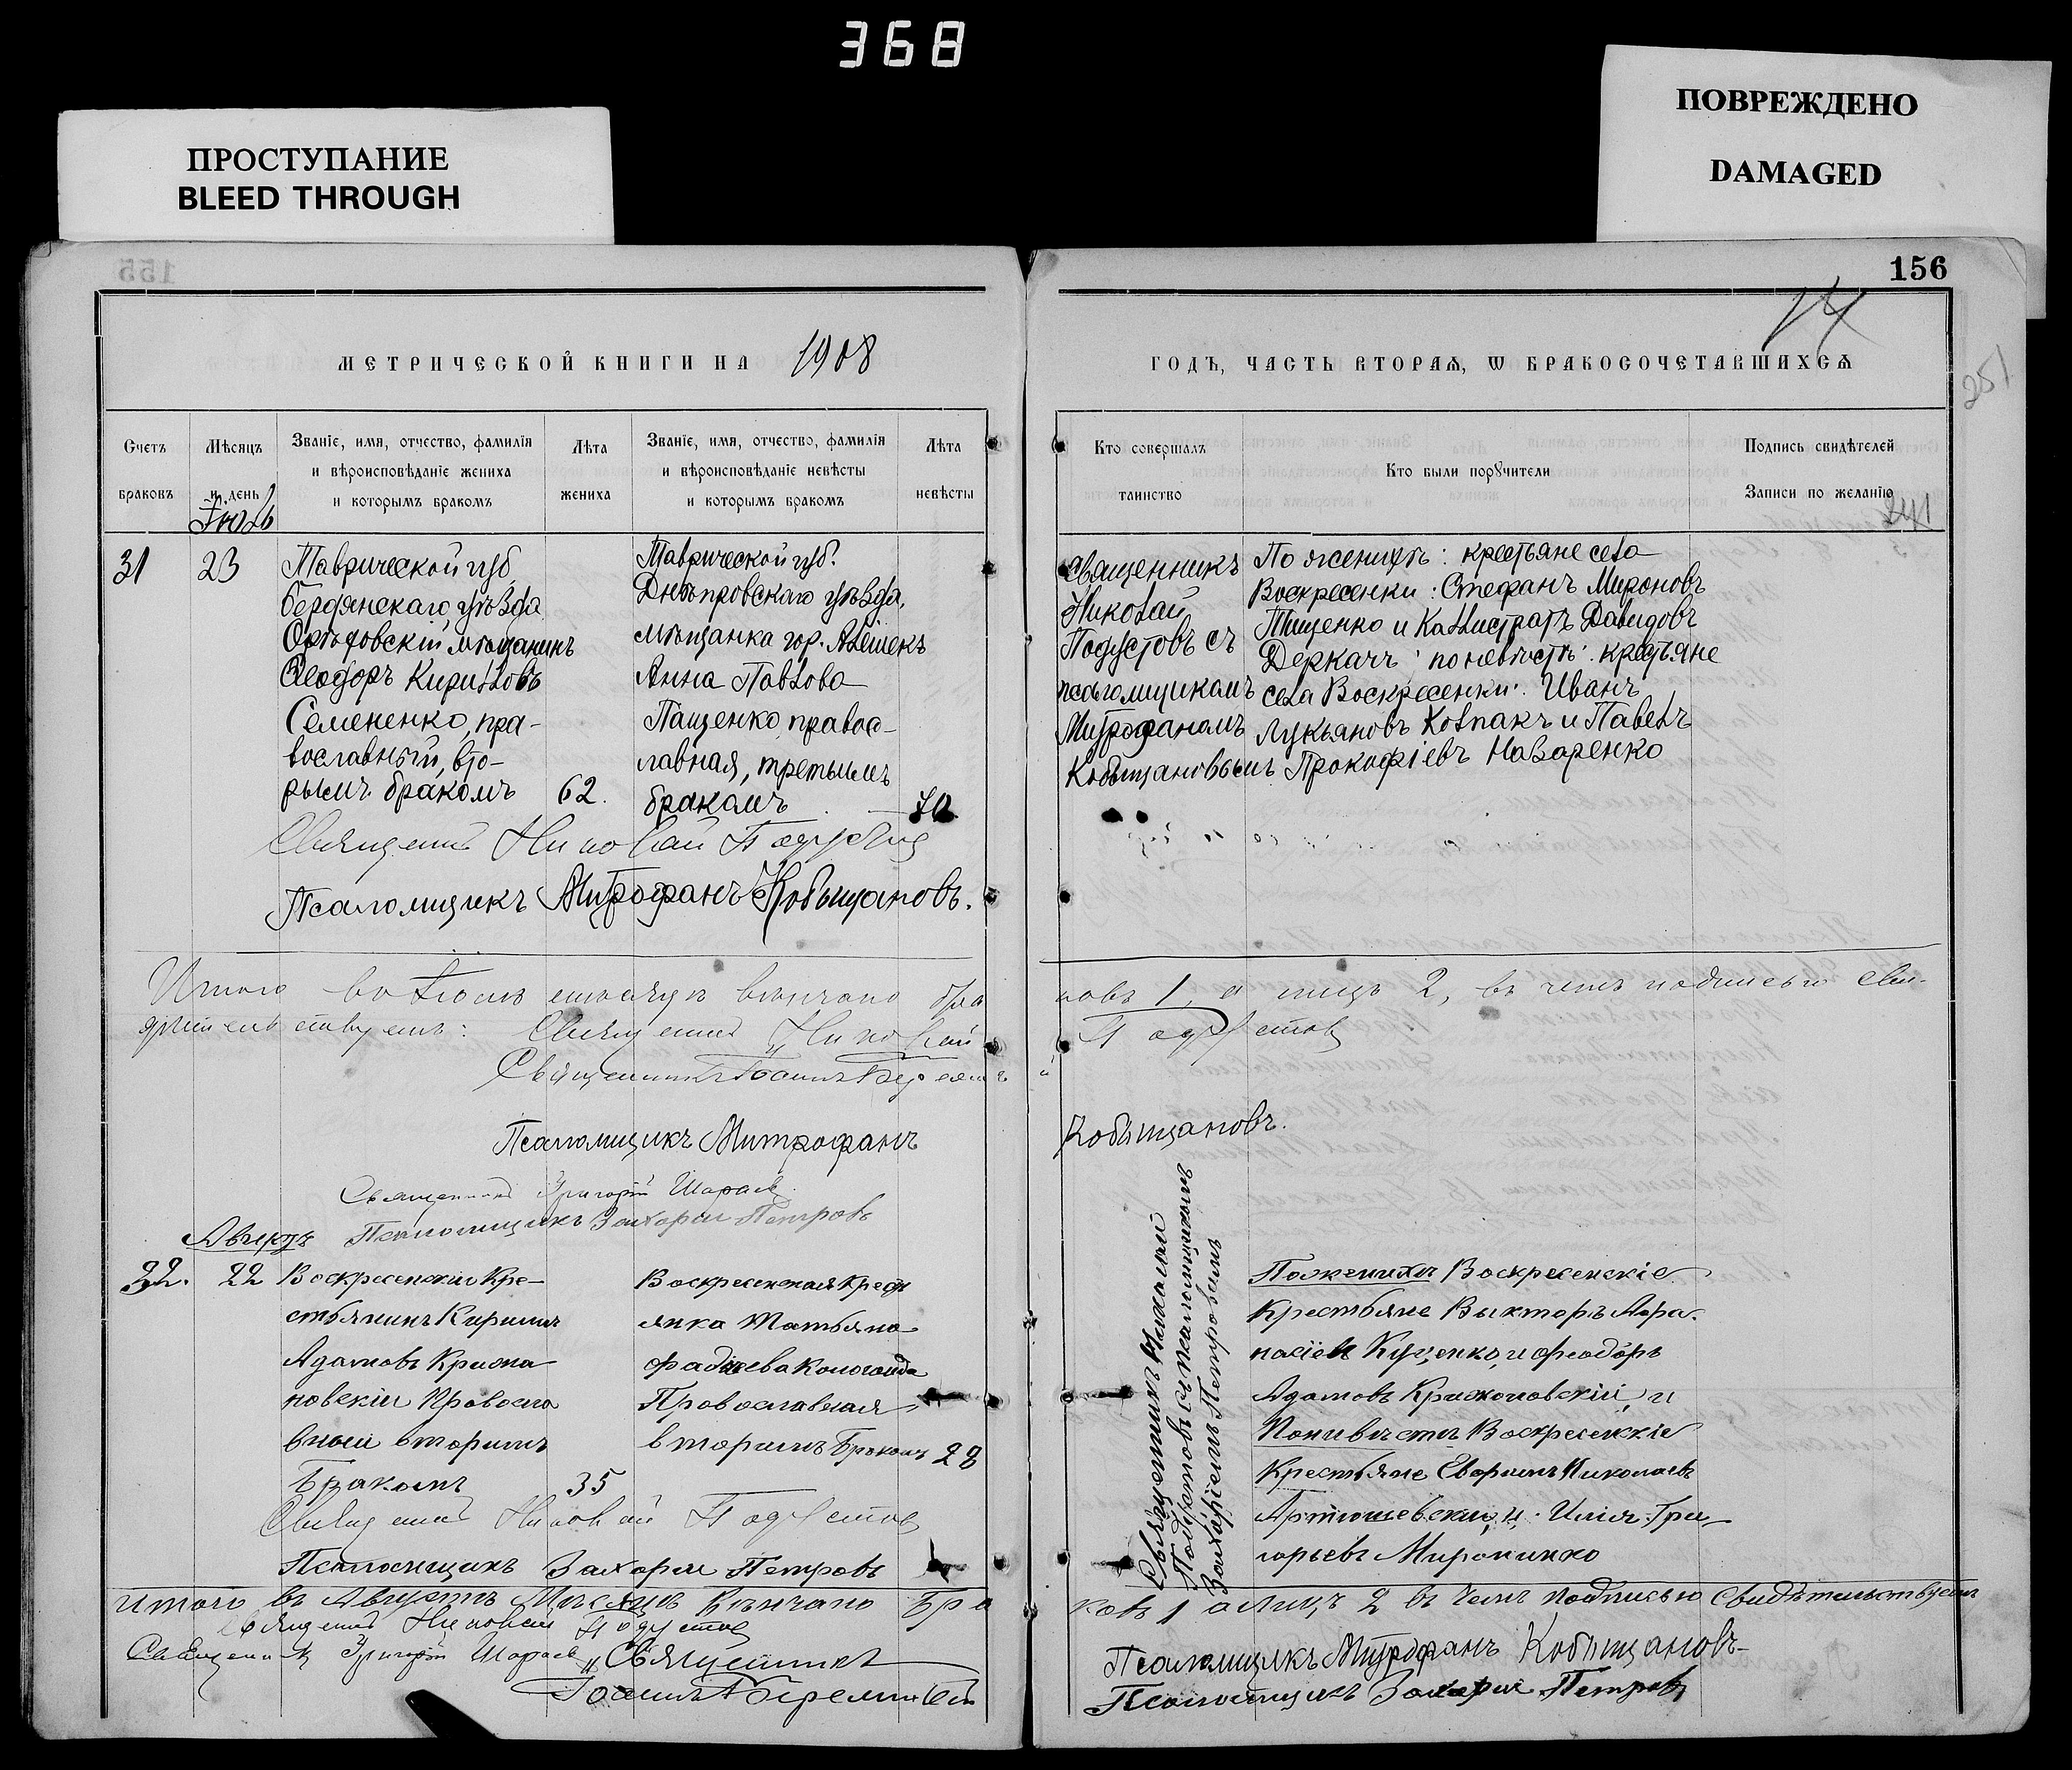 368
ПРОСТУПАНИЕ
BLEED THROUGH
ПОВРЕЖДЕНО
DAMAGED
155
156
14
251
МЕТРИЧЕСКОЙ КНИГИ НА 1908
ГОДЪ, ЧАСТЬ ВТОРАѦ, Ѡ БРАКОСОЧЕТАВШИХСѦ
Счетъ
браковъ
Мѣсяцъ
и день
Званіе, имя, отчество, фамилія
и вѣроисповѣданіе жениха
и которымъ бракомъ
Лѣта
жениха
Званіе, имя, отчество, фамилія
и вѣроисповѣданіе невѣсты
и которымъ бракомъ
Лѣта
невѣсты
Кто совершалъ
таинство
Кто были порꙋчители
Подпись свидѣтелей
Записи по желанію
241
Іюль
31
23
Таврической губ.
Бердянскаго уѣзда
Орѣховскій мѣщанинъ
Ѳеодоръ Кирилловъ
Семененко, пра-
вославный, вто-
рымъ бракомъ
62.
Таврической губ.
Днѣпровскаго уѣзда,
мѣщанка гор. Алешекъ
Анна Павлова
Пащенко, правос-
лавная, третьимъ
бракомъ
Священникъ
Николай
Подустовъ съ
псаломщикомъ
Митрофаномъ
Кобыщановымъ
По женихѣ: крестьяне села
Воскресенки: Стефанъ Мироновъ
Тищенко и Каллистратъ Давидовъ
Деркачъ; по невѣстѣ: крестьяне
села Воскресенки: Иванъ
Лукьяновъ Колпакъ и Павелъ
Прокофіевъ Назаренко
Священникъ Николай Подустов
Псаломщикъ Митрофанъ Кобыщановъ.
Итого въ Іюлѣ мѣсяцѣ вѣнчано бра
ковъ 1, а лицъ 2, въ чемъ подписью сви-
дѣтельствуемъ: Священникъ Николай
Подустов
Священникъ Іоаннъ
Псаломщикъ Митрофанъ
Кобыщановъ.
Священникъ Григорій
Псаломщикъ Захарій Петровъ
Августъ
32.
22
Воскресенскій Кре-
стьянинъ Кирилъ
Адамовъ Крижа
новскій Правосла
вный вторымъ
Бракомъ
35
Воскресенская Крест
янка Татьяна
Фадѣева
Православная
вторимъ Бракомъ
28
Священникъ Николай
Подустовъ съ псаломщикомъ
Захаріемъ Петровымъ
По женихѣ Воскресенскіе
Крестьяне Викторъ Афа.
насіев Куценко, и Феодоръ
Адамовъ Крижановскій, и
По невѣстѣ Воскресенскіе
Крестьяне Николаевъ
и Илія Гри
горьевъ
Священникъ Николай Подустов
Псаломщикъ Захарій Петровъ
Итого въ Августѣ Мѣсяцѣ Вѣнчано Бра
ковъ 1 а Лицъ 2 въ Чемъ Подписью Свидѣтельствуемъ
Священникъ Николай Подустов
Священникъ Григорій
Священникъ
Іоаннъ
Псаломщикъ Митрофанъ Кобыщановъ
Псаломщикъ Захарій Петровъ